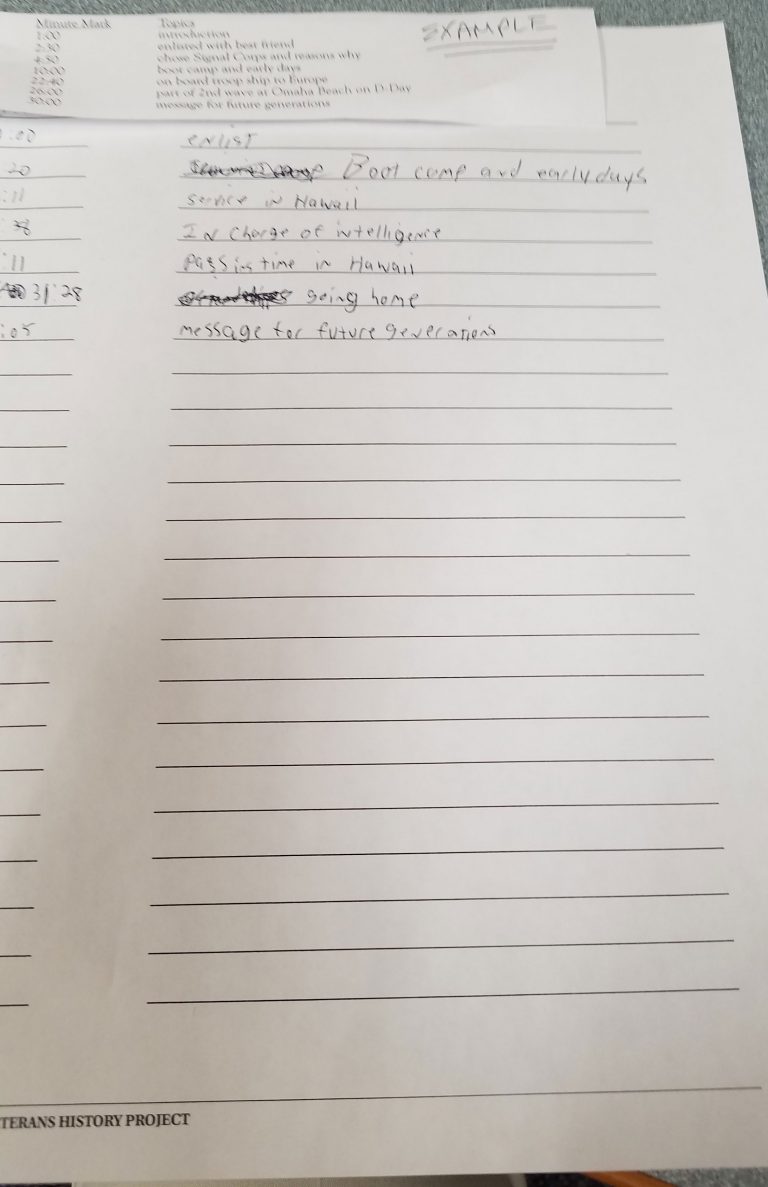 Minute Mark Topics EXAMPLE
1:00 introduction
2:30 enlisted with best friend
4:50 chose Signal Corps and reasons why
10:00 boot camp and early days
22:40 on board troop ship to Europe
26:00 part of 2nd wave at Omaha Beach on D-Day
30:00 message for future generations
:00 enlist
20 Boot camp and early days
:11 service in Hawaii
38 In Charge of intelligence
:11 passing time in Hawaii
31:28 going home
:05 message for future generations
TERANS HISTORY PROJECT